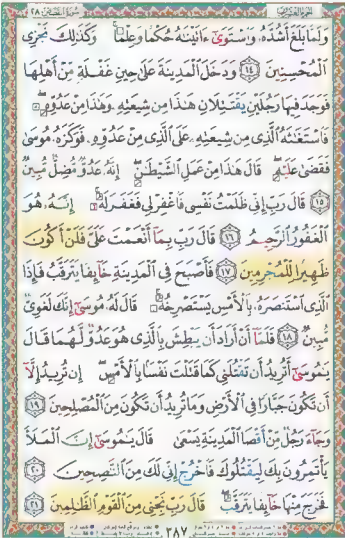 الجزء العشرون سورة القصص ٢٨
وَلَمَّا بَلَغَ أَشُدَّهُۥ وَٱسْتَوَىٰٓ ءَاتَيْنَٰهُ حُكْمًا وَعِلْمًا ۚ وَكَذَٰلِكَ نَجْزِى
ٱلْمُحْسِنِينَ ١٤ وَدَخَلَ ٱلْمَدِينَةَ عَلَىٰ حِينِ غَفْلَةٍ مِّنْ أَهْلِهَا
فَوَجَدَ فِيهَا رَجُلَيْنِ يَقْتَتِلَانِ هَٰذَا مِن شِيعَتِهِۦ وَهَٰذَا مِنْ عَدُوِّهِۦ ۖ
فَٱسْتَغَٰثَهُ ٱلَّذِى مِن شِيعَتِهِۦ عَلَى ٱلَّذِى مِنْ عَدُوِّهِۦ فَوَكَزَهُۥ مُوسَىٰ
فَقَضَىٰ عَلَيْهِ ۖ قَالَ هَٰذَا مِنْ عَمَلِ ٱلشَّيْطَٰنِ ۖ إِنَّهُۥ عَدُوٌّ مُّضِلٌّ مُّبِينٌ
١٥ قَالَ رَبِّ إِنِّى ظَلَمْتُ نَفْسِى فَٱغْفِرْ لِى فَغَفَرَ لَهُۥٓ ۚ إِنَّهُۥ هُوَ
ٱلْغَفُورُ ٱلرَّحِيمُ ١٦ قَالَ رَبِّ بِمَآ أَنْعَمْتَ عَلَىَّ فَلَنْ أَكُونَ
ظَهِيرًا لِّلْمُجْرِمِينَ ١٧ فَأَصْبَحَ فِى ٱلْمَدِينَةِ خَآئِفًا يَتَرَقَّبُ فَإِذَا
ٱلَّذِى ٱسْتَنصَرَهُۥ بِٱلْأَمْسِ يَسْتَصْرِخُهُۥ ۚ قَالَ لَهُۥ مُوسَىٰٓ إِنَّكَ لَغَوِىٌّ
مُّبِينٌ ١٨ فَلَمَّآ أَنْ أَرَادَ أَن يَبْطِشَ بِٱلَّذِى هُوَ عَدُوٌّ لَّهُمَا قَالَ
يَٰمُوسَىٰٓ أَتُرِيدُ أَن تَقْتُلَنِى كَمَا قَتَلْتَ نَفْسًۢا بِٱلْأَمْسِ ۖ إِن تُرِيدُ إِلَّآ
أَن تَكُونَ جَبَّارًا فِى ٱلْأَرْضِ وَمَا تُرِيدُ أَن تَكُونَ مِنَ ٱلْمُصْلِحِينَ ١٩
وَجَآءَ رَجُلٌ مِّنْ أَقْصَا ٱلْمَدِينَةِ يَسْعَىٰ قَالَ يَٰمُوسَىٰٓ إِنَّ ٱلْمَلَأَ
يَأْتَمِرُونَ بِكَ لِيَقْتُلُوكَ فَٱخْرُجْ إِنِّى لَكَ مِنَ ٱلنَّٰصِحِينَ ٢٠
فَخَرَجَ مِنْهَا خَآئِفًا يَتَرَقَّبُ ۖ قَالَ رَبِّ نَجِّنِى مِنَ ٱلْقَوْمِ ٱلظَّٰلِمِينَ ٢١
٣٨٧